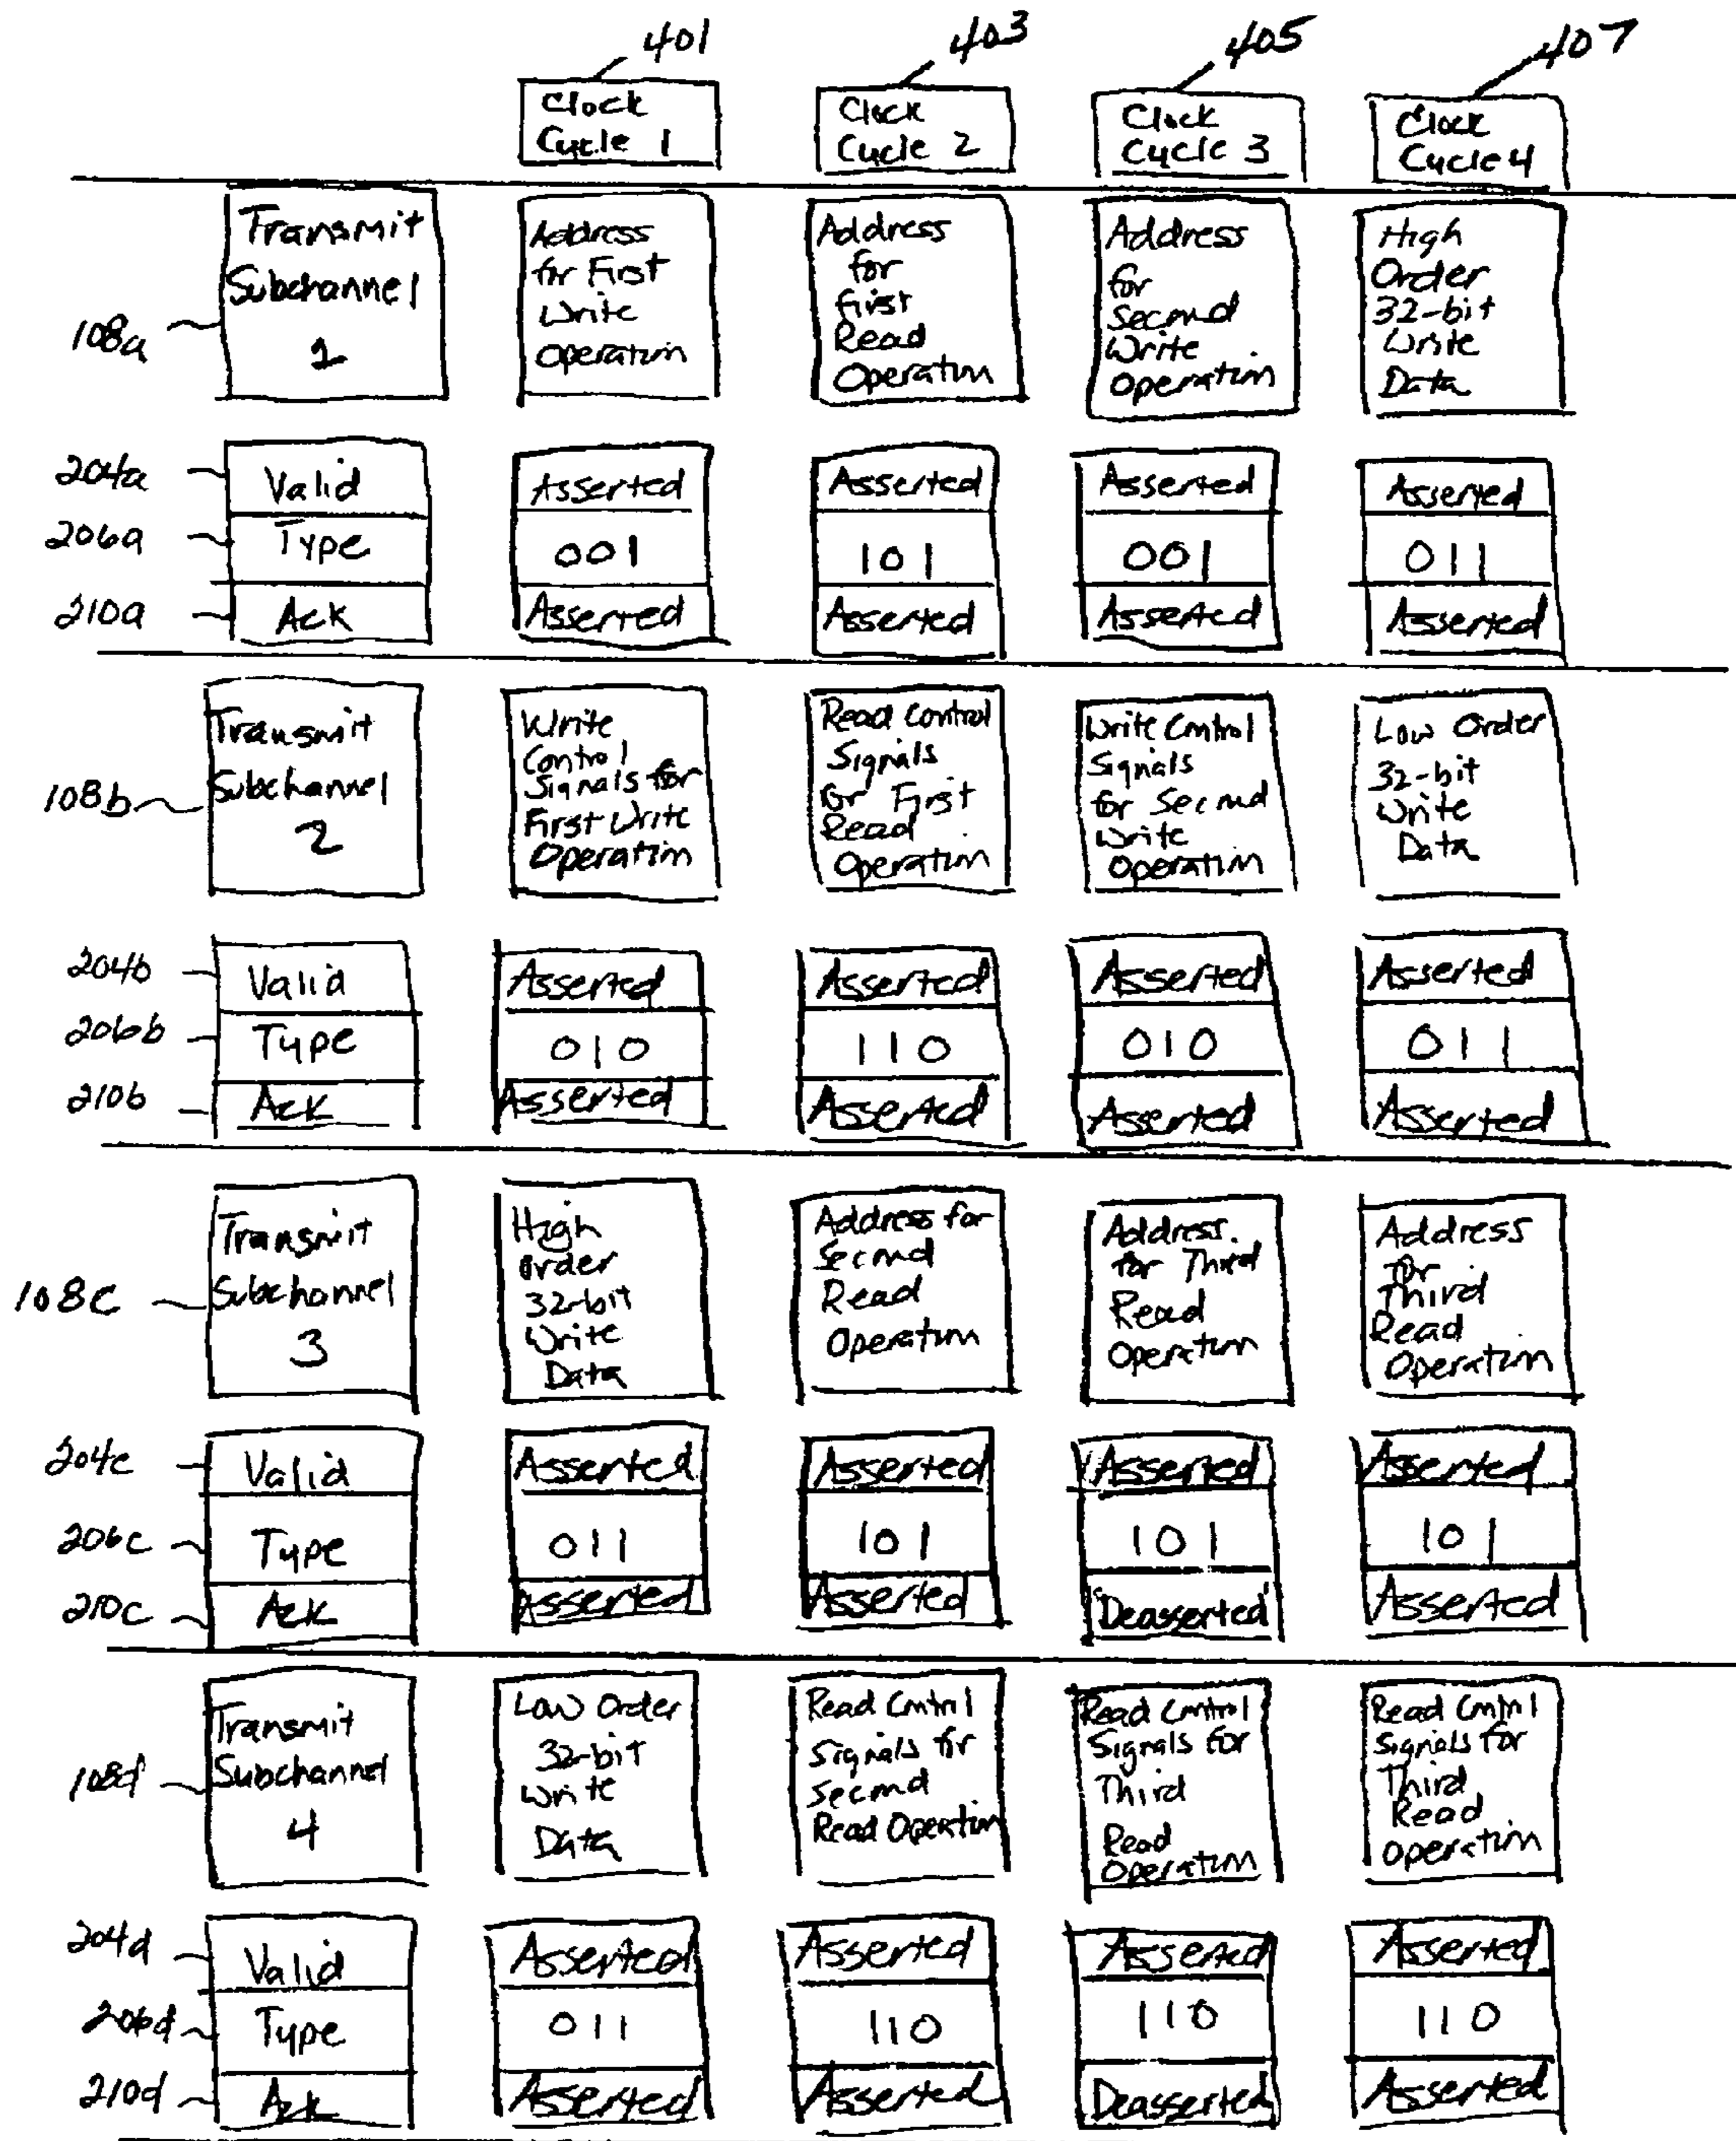 401
403
405
407
Clock
Cycle 1
Clock
Cycle 2
Clock
Cycle 3
Clock
Cycle 4
108a
Transmit
Subchannel
1
Address
for First
Write
Operation
Address
for
First
Read
Operation
Address
for
Second
Write
Operation
High
Order
32-bit
Write
Data
204a
Valid
Asserted
Asserted
Asserted
Asserted
206a
Type
001
101
001
011
210a
Ack
Asserted
Asserted
Asserted
Asserted
108b
Transmit
Subchannel
2
Write
Control
Signals for
First Write
Operation
Read Control
Signals
for First
Read
Operation
Write Control
Signals
for Second
Write
Operation
Low Order
32-bit
Write
Data
204b
Valid
Asserted
Asserted
Asserted
Asserted
206b
Type
010
110
010
011
210b
Ack
Asserted
Asserted
Asserted
Asserted
108c
Transmit
Subchannel
3
High
Order
32-bit
Write
Data
Address for
Second
Read
Operation
Address
for Third
Read
Operation
Address
for
Third
Read
Operation
204c
Valid
Asserted
Asserted
Asserted
Asserted
206c
Type
011
101
101
101
210c
Ack
Asserted
Asserted
Deasserted
Asserted
108d
Transmit
Subchannel
4
Low Order
32-bit
Write
Data
Read Control
Signals for
Second
Read Operation
Read Control
Signals for
Third
Read
Operation
Read Control
Signals for
Third
Read
Operation
204d
Valid
Asserted
Asserted
Asserted
Asserted
206d
Type
011
110
110
110
210d
Ack
Asserted
Asserted
Deasserted
Asserted